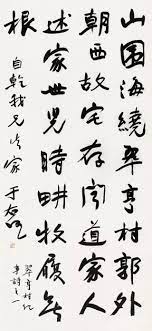 山圍海繞翠亨村郭外
朝西故宅存聞道家人
述家世兒時畊牧履無
根
自乾我兄法家 于右任
翠亨村紀
事詩之一